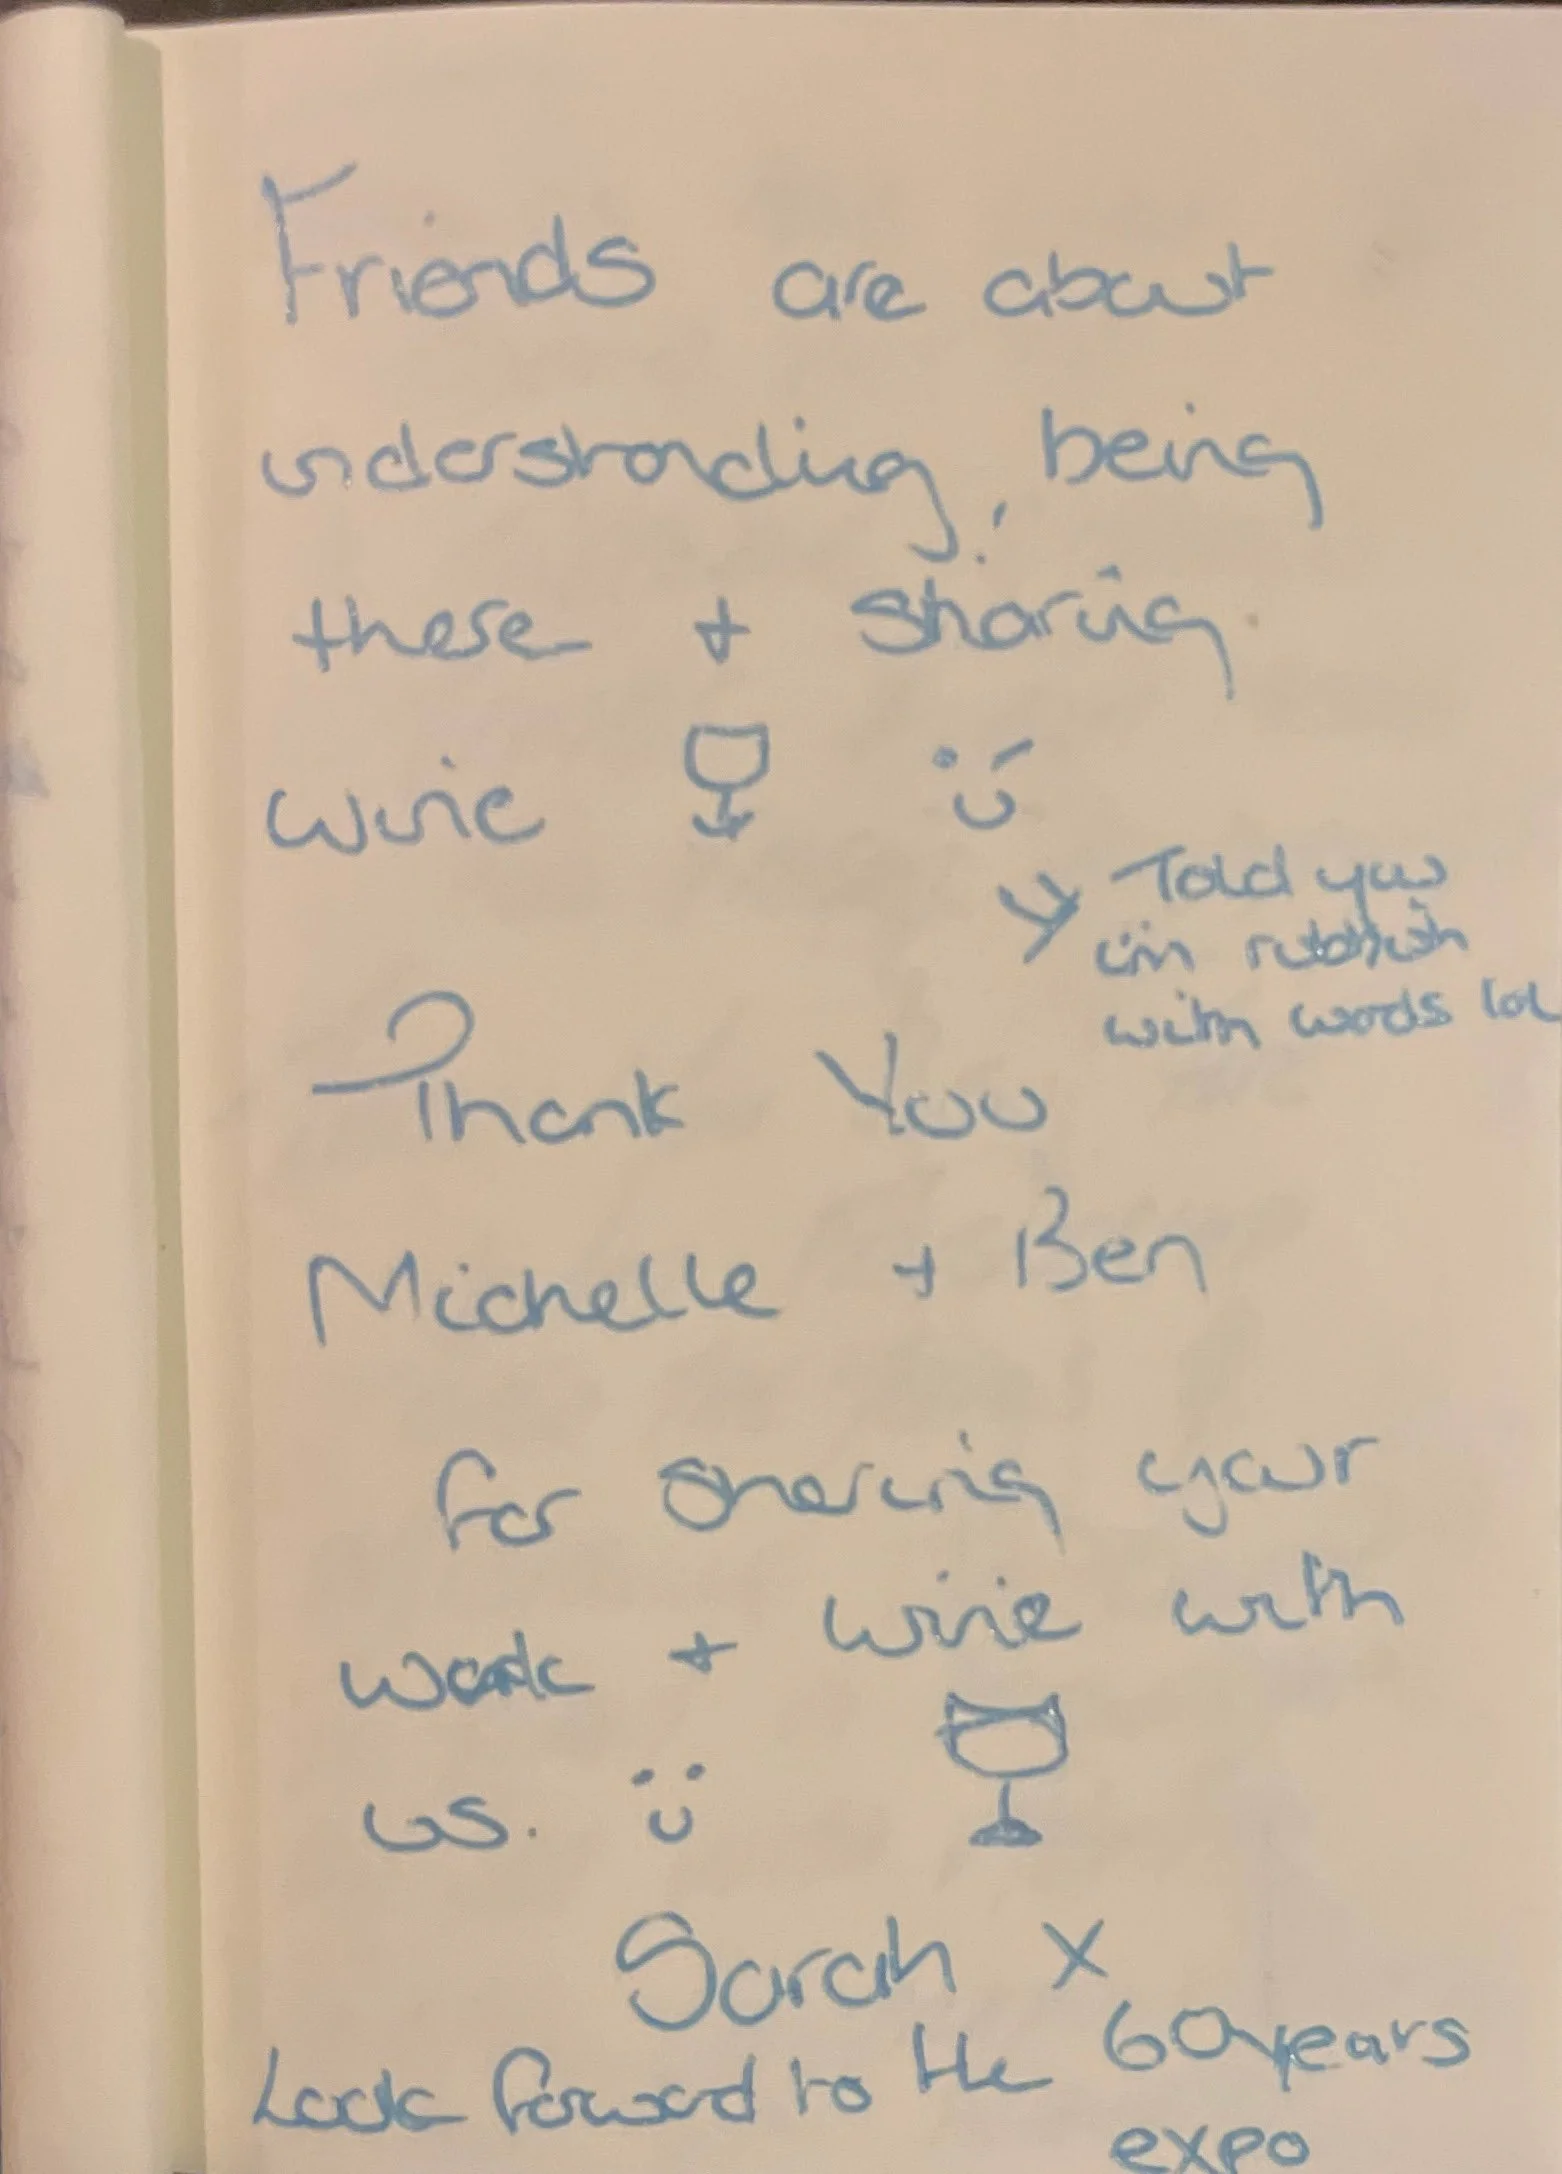 Friends are about
understanding, being
there + sharing
wine
Told you
im rubbish
with words lol
Thank You
Michelle + Ben
for sharing your
work + wine with
us.
Sarah x
Look forward to the 60years
expo